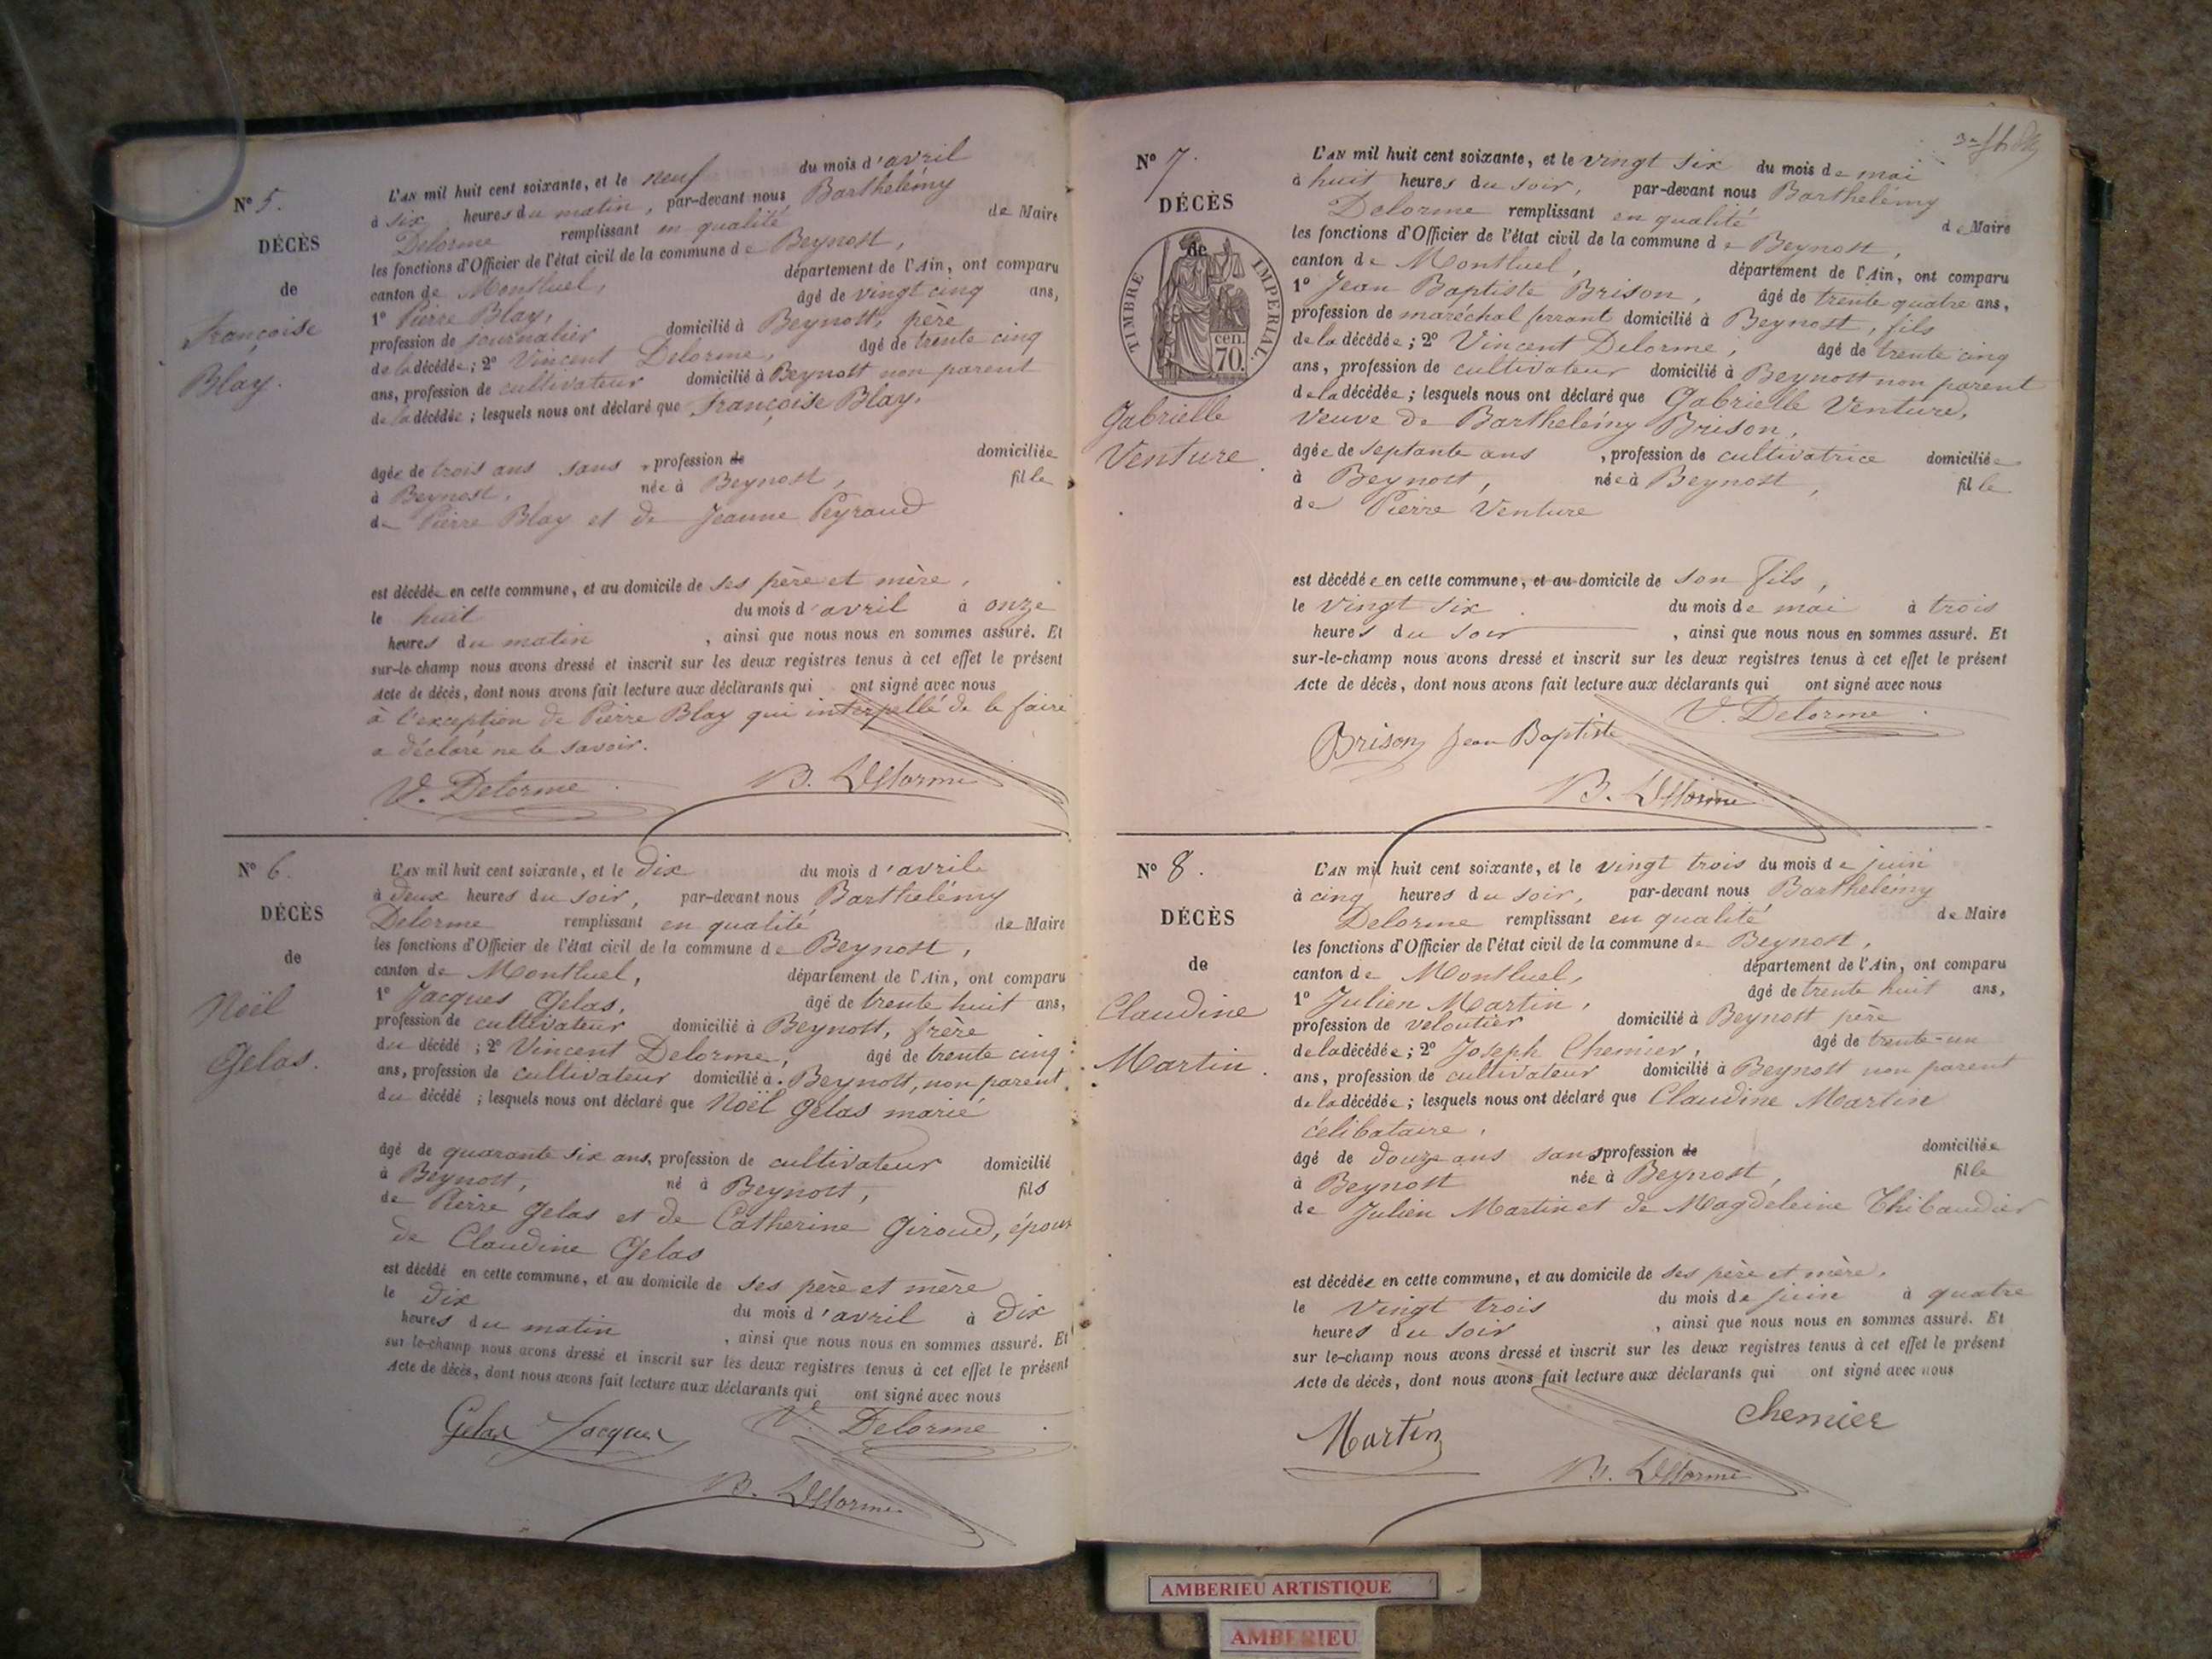 N° 5.
DÉCÈS
de
Françoise
Blay.
L'AN mil huit cent soixante, et le neuf du mois d'avril
à six heures du matin, par-devant nous Barthelémy
Delorme remplissant en qualité de Maire
les fonctions d'Officier de l'état civil de la commune de Beynost,
canton de Montluel, département de l'Ain, ont comparu
1° Pierre Blay, âgé de vingt cinq ans,
profession de journalier domicilié à Beynost, père
de la décédée; 2° Vincent Delorme, âgé de trente cinq
ans, profession de cultivateur domicilié à Beynost non parent
de la décédée; lesquels nous ont déclaré que Françoise Blay,
âgée de trois ans sans, profession de domiciliée
à Beynost, née à Beynost, fille
de Pierre Blay et de Jeanne Peyraud
est décédée en cette commune, et au domicile de ses père et mère,
le huit du mois d'avril à onze
heures du matin, ainsi que nous nous en sommes assuré. Et
sur-le-champ nous avons dressé et inscrit sur les deux registres tenus à cet effet le présent
Acte de décès, dont nous avons fait lecture aux déclarants qui ont signé avec nous
à l'exception de Pierre Blay qui interpellé de le faire
a déclaré ne le savoir.
V. Delorme B. Delorme
N° 6.
DÉCÈS
de
Noël
Gelas.
L'AN mil huit cent soixante, et le dix du mois d'avril
à deux heures du soir, par-devant nous Barthelémy
Delorme remplissant en qualité de Maire
les fonctions d'Officier de l'état civil de la commune de Beynost,
canton de Montluel, département de l'Ain, ont comparu
1° Jacques Gelas, âgé de trente huit ans,
profession de cultivateur domicilié à Beynost, frère
du décédé; 2° Vincent Delorme, âgé de trente cinq
ans, profession de cultivateur domicilié à Beynost, non parent
du décédé; lesquels nous ont déclaré que Noël Gelas marié
âgé de quarante six ans, profession de cultivateur domicilié
à Beynost, né à Beynost, fils
de Pierre Gelas et de Catherine Giroud, époux
de Claudine Gelas
est décédé en cette commune, et au domicile de ses père et mère
le dix du mois d'avril à dix
heures du matin, ainsi que nous nous en sommes assuré. Et
sur le-champ nous avons dressé et inscrit sur les deux registres tenus à cet effet le présent
Acte de décès, dont nous avons fait lecture aux déclarants qui ont signé avec nous
Gelas Jacques V. Delorme
B. Delorme
N° 7.
DÉCÈS
de
TIMBRE IMPERIAL.
cen.
70.
Gabrielle
Venture.
L'AN mil huit cent soixante, et le vingt six du mois de mai
à huit heures du soir, par-devant nous Barthelémy
Delorme remplissant en qualité de Maire
les fonctions d'Officier de l'état civil de la commune de Beynost,
canton de Montluel, département de l'Ain, ont comparu
1° Jean Baptiste Brison, âgé de trente quatre ans,
profession de maréchal ferrant domicilié à Beynost, fils
de la décédée; 2° Vincent Delorme, âgé de trente cinq
ans, profession de cultivateur domicilié à Beynost non parent
de la décédée; lesquels nous ont déclaré que Gabrielle Venture,
veuve de Barthelémy Brison,
âgée de septante ans, profession de cultivatrice domiciliée
à Beynost, née à Beynost, fille
de Pierre Venture
est décédée en cette commune, et au domicile de son fils,
le vingt six du mois de mai à trois
heures du soir, ainsi que nous nous en sommes assuré. Et
sur-le-champ nous avons dressé et inscrit sur les deux registres tenus à cet effet le présent
Acte de décès, dont nous avons fait lecture aux déclarants qui ont signé avec nous
Brison Jean Baptiste V. Delorme
B. Delorme
N° 8.
DÉCÈS
de
Claudine
Martin.
L'AN mil huit cent soixante, et le vingt trois du mois de juin
à cinq heures du soir, par-devant nous Barthelémy
Delorme remplissant en qualité de Maire
les fonctions d'Officier de l'état civil de la commune de Beynost,
canton de Montluel, département de l'Ain, ont comparu
1° Julien Martin, âgé de trente huit ans,
profession de veloutier domicilié à Beynost père
de la décédée; 2° Joseph Chemier, âgé de trente-un
ans, profession de cultivateur domicilié à Beynost non parent
de la décédée; lesquels nous ont déclaré que Claudine Martin
célibataire,
âgé de douze ans sans profession de domiciliée
à Beynost née à Beynost, fille
de Julien Martin et de Magdeleine Thibaudier
est décédée en cette commune, et au domicile de ses père et mère,
le vingt trois du mois de juin à quatre
heures du soir, ainsi que nous nous en sommes assuré. Et
sur le-champ nous avons dressé et inscrit sur les deux registres tenus à cet effet le présent
Acte de décès, dont nous avons fait lecture aux déclarants qui ont signé avec nous
Martin Chemier
B. Delorme
AMBERIEU ARTISTIQUE
AMBERIEU